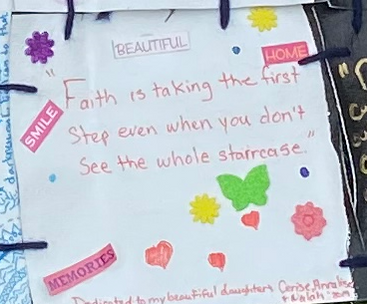 BEAUTIFUL
HOME
"Faith is taking the first
Step even when you don't
See the whole staircase."
SMILE
MEMORIES
Dedicated to my beautiful daughters Cerise, Annalise